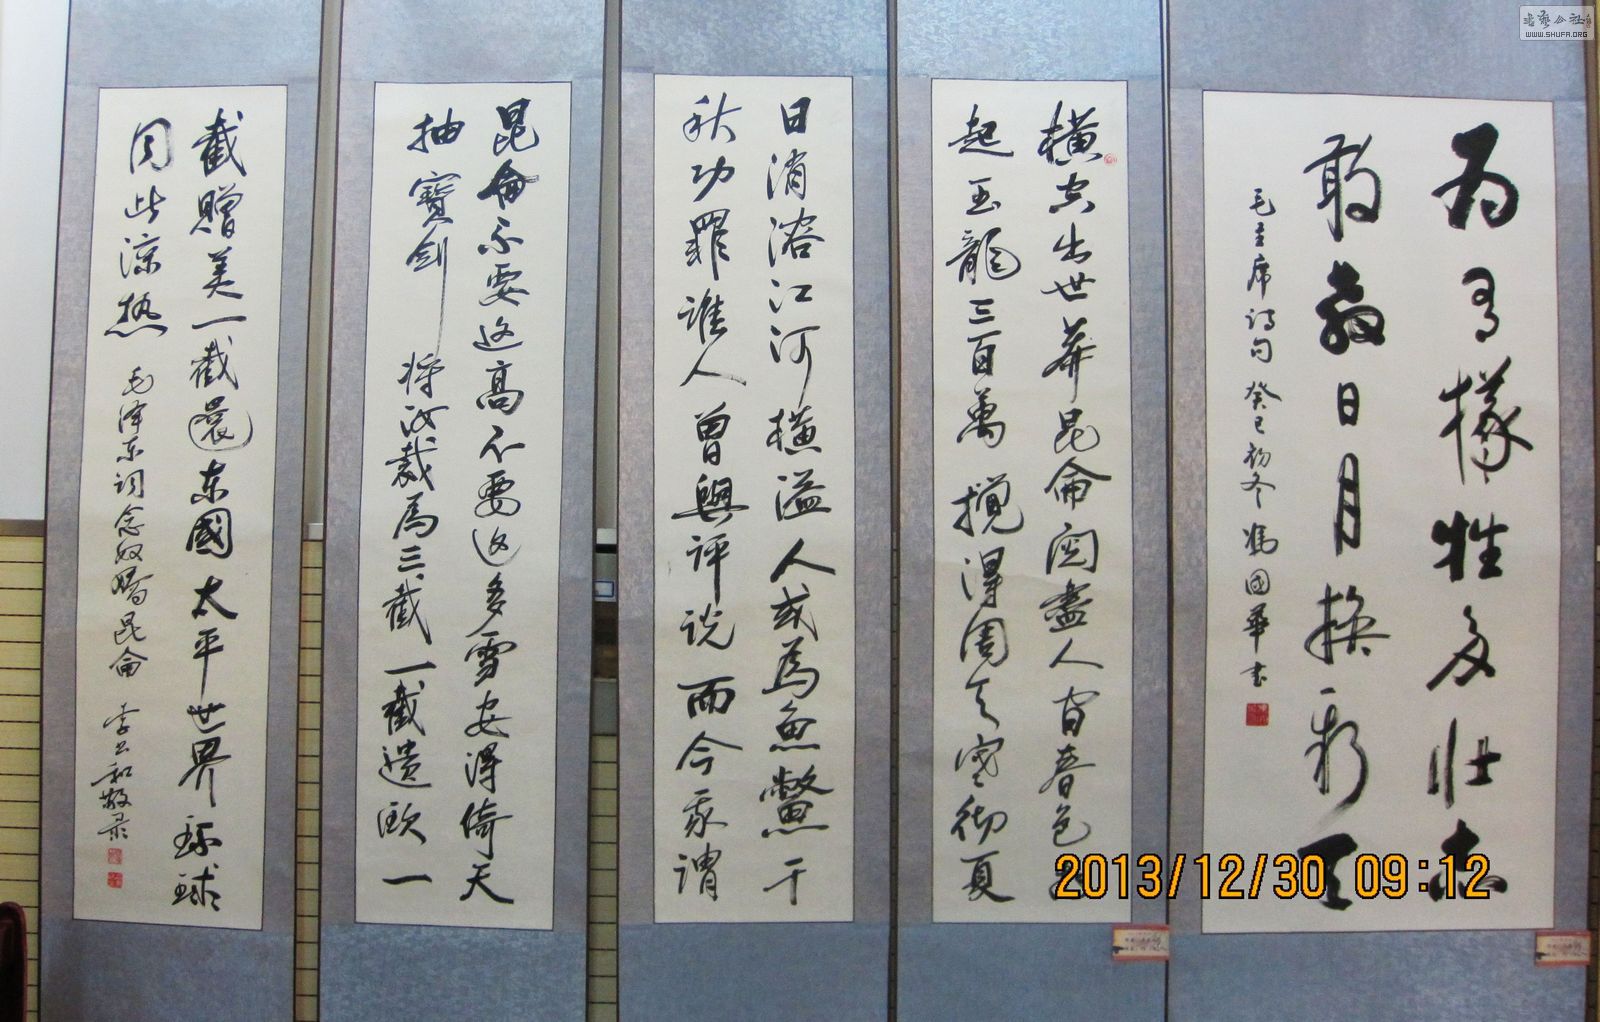 为有犧牲多壮志
敢教日月换新天
毛主席诗句 癸巳初冬 馮國華书
横空出世莽昆侖阅盡人间春色
起玉龍三百萬攪得周天寒彻夏
日消溶江河横溢人或為魚鱉千
秋功罪谁人曾與评说而今我謂
昆侖不要这高不要这多雪安得倚天
抽寶劍将汝裁為三截一截遗欧一
截贈美一截還东國太平世界环球
同此凉热 毛泽东词念奴嬌昆侖 李 和敬录
2013/12/30 09:12
书艺公社
WWW.SHUFA.ORG